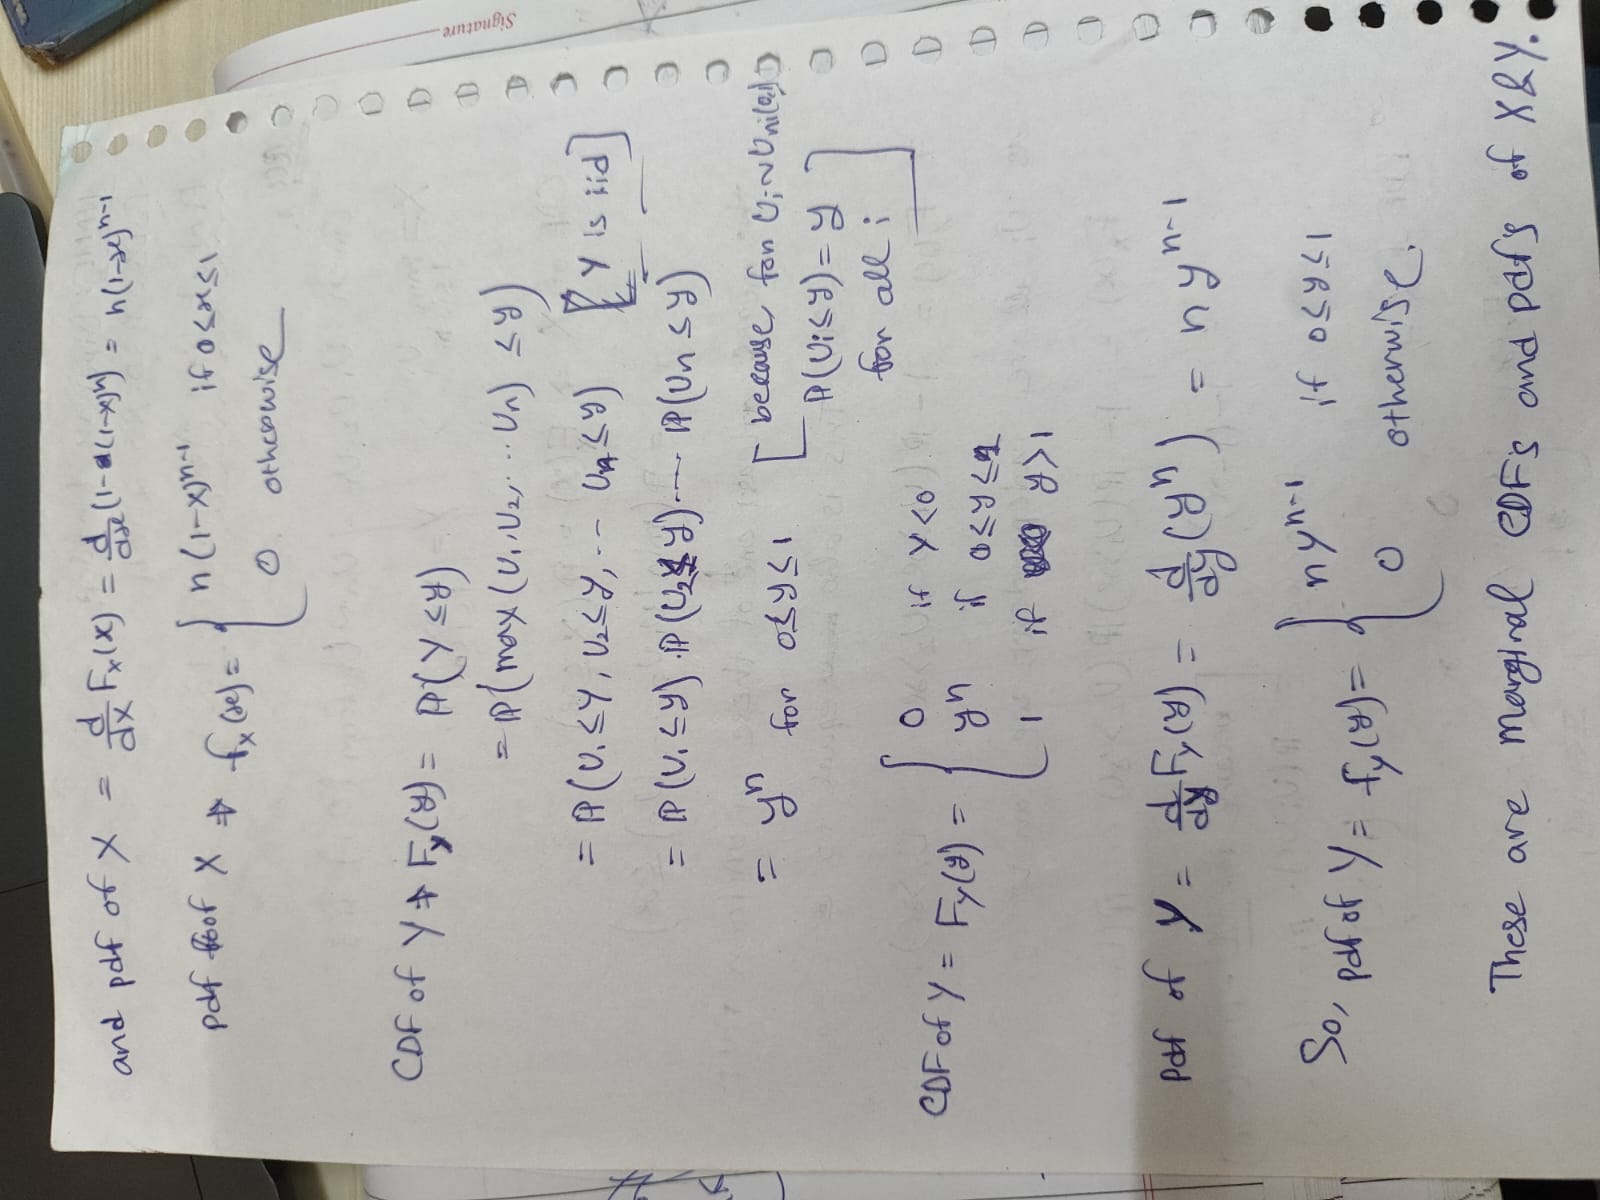 and pdf of X = d/dx F_X(x) = d/dx (1-(1-x)^n) = n(1-x)^{n-1}
pdf of X → f_X(x) = { n(1-x)^{n-1} if 0≤x≤1
0 otherwise
CDF of Y → F_Y(y) = ℙ(Y ≤ y)
= ℙ(max(U₁, U₂, ... Uₙ) ≤ y)
= ℙ(U₁ ≤ Y, U₂ ≤ y, -- Uₙ ≤ y) [Y is iid]
= ℙ(U₁ ≤ y) · ℙ(U₂ ≤ y) --- ℙ(Uₙ ≤ y)
= yⁿ for 0≤y≤1 [because, for Uᵢ ~ Uni(0,1)
ℙ(Uᵢ ≤ y) = y
for all i]
CDF of Y = F_Y(y) = { 0 if Y<0
yⁿ if 0≤y≤1
1 if y>1
pdf of Y = d/dy F_Y(y) = d/dy (yⁿ) = n y^{n-1}
So, pdf of Y = f_Y(y) = { n y^{n-1} if 0≤y≤1
0 otherwise.
These are marginal CDF's and pdf's of X & Y.
Signature